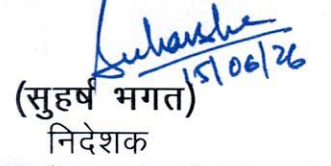 Suharsha
15/06/26
(सुहर्ष भगत)
निदेशक